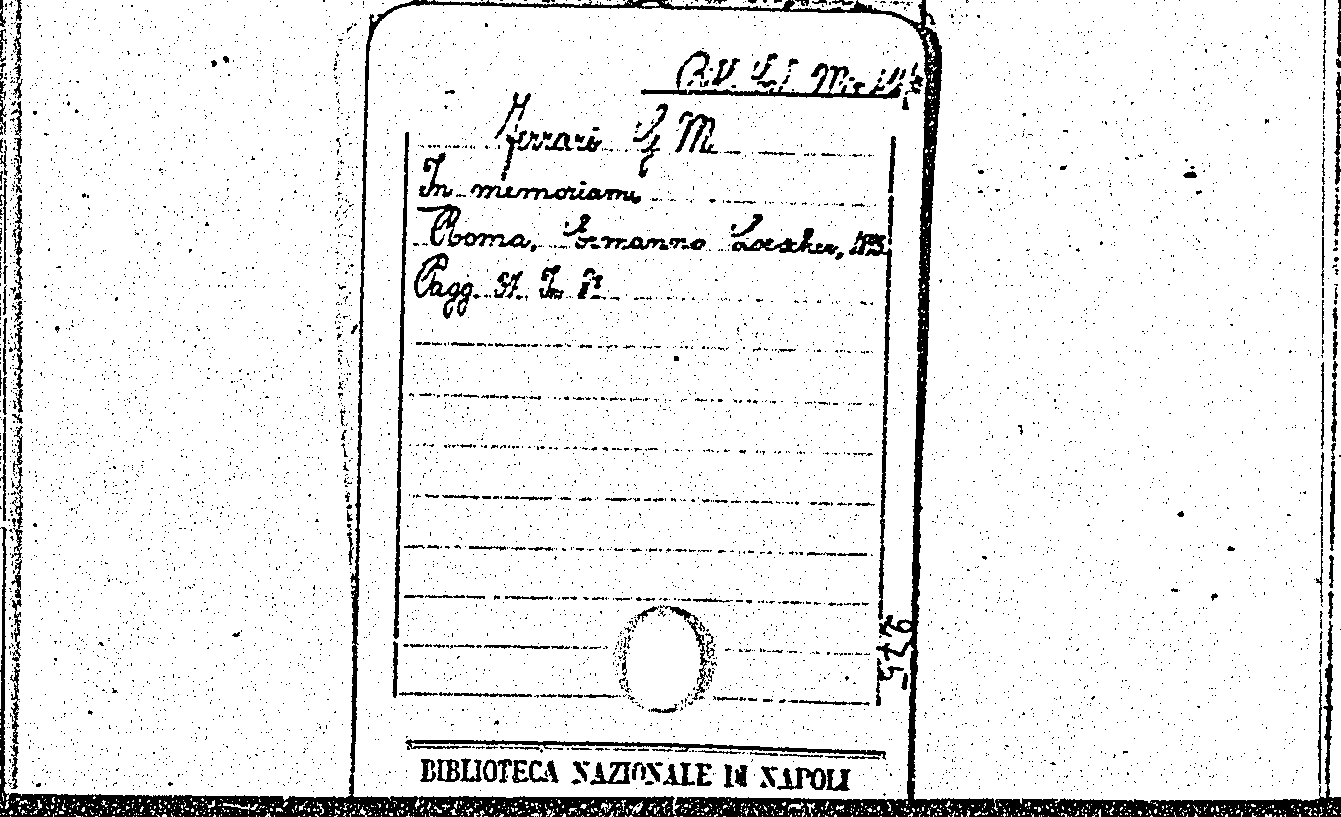 Ferrari G M
In memoriam
Roma, Ermanno Loescher,
Pagg. 31. In 8°
BIBLIOTECA NAZIONALE DI NAPOLI